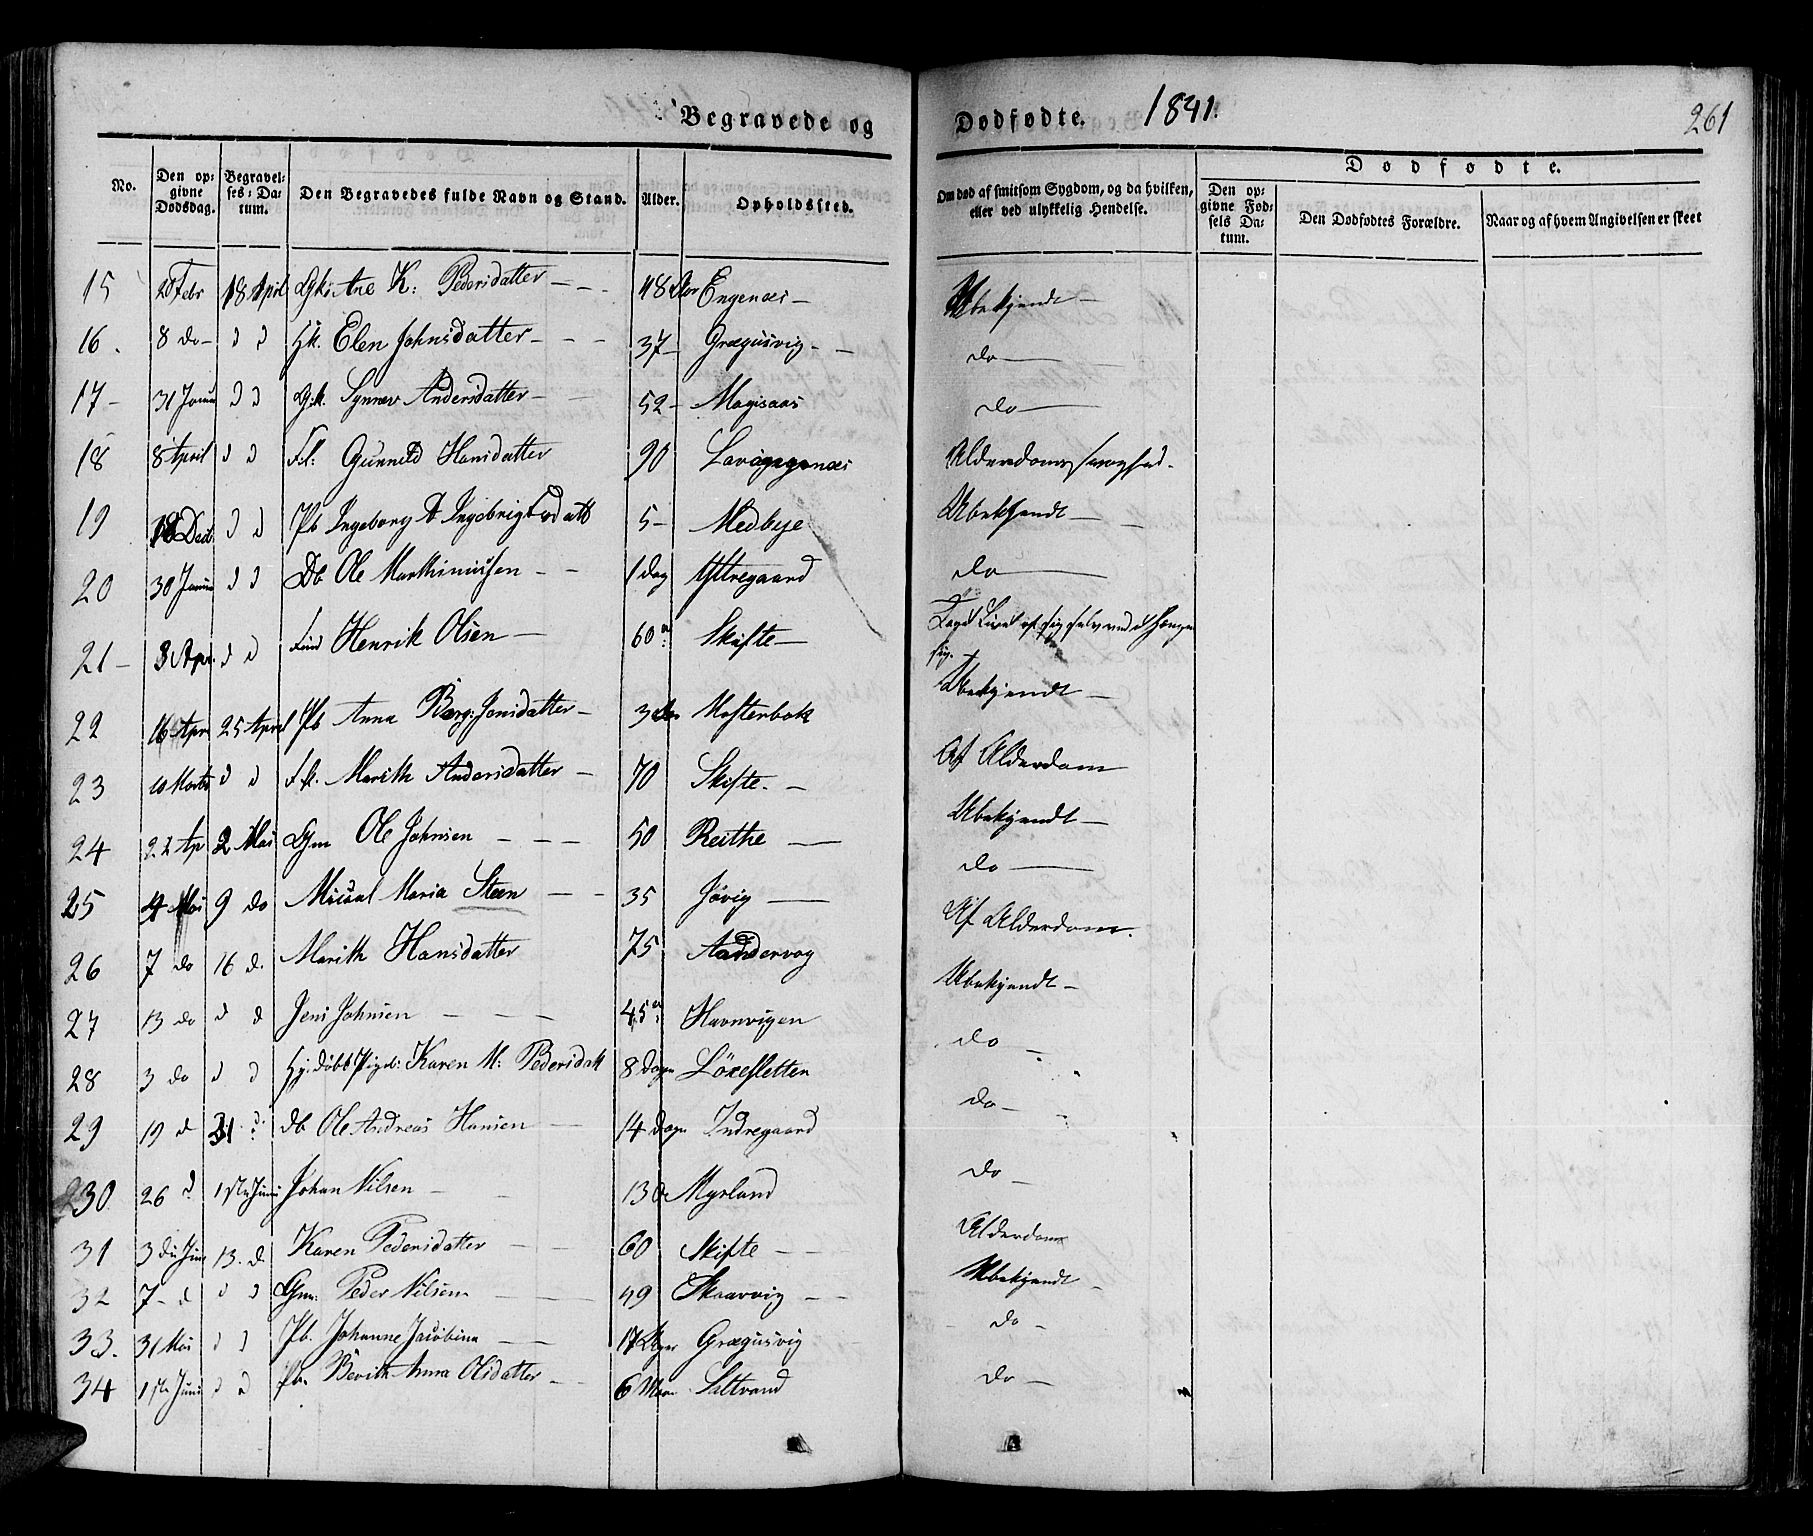 Begravede og Dødfødte. 1841. 261
No. Den opgivne Dødsdag. Begravelses-Datum. Den Begravedes fulde Navn og Stand. Alder. Opholdssted. Om død af smitsom Sygdom, og da hvilken, eller ved ulykkelig Hendelse. Dødfødte. Den opgivne Fødsels Datum. Den Dødfødtes Forældre. Naar og af hvem Angivelsen er skeet
15 28 Febr 18 April Gk: Ane K: Pedersdatter 48 Engenæs Ubekjendt
16. 8 do d d Hk. Elen Johnsdatter 37 Grægusvig do
17 31 Janu d d G.k. Synnev Andersdatter 52 Magisaas do
18 8 April d d Fl: Gunnild Hansdatter 90 Alderdoms
19 18 Dec d d Pb Ingeborg 5 Medbye Ubekjendt
20 30 Janu d d Db Ole Marthinussen 1 dag Yttregaard do
21 3 Apr. d d Henrik Olsen 60 a: Skifte Taget Livet af sig selv ved at hænge sig.
22 16 Apr 25 April Pb Anna Berg: Jensdatter 3 Mosterbak Ubekjendt
23 10 Marts d d Fk. Marith Andersdatter 70 Skifte. Af Alderdom
24 22 Ap 2 Mai Gm Ole Johnsen 50 Reithe Ubekjendt
25 4 Mai 9 do Maria Steen 35 Jøvig do
26 7 do 16 d. Marith Hansdatter 75 Aandervag Af Alderdom.
27 13 do d d Jens Johnsen 45 a: Havnvigen Ubekjendt
28 3 do d d Hj: døbt Pigeb: Karen M: Pedersdatt 8 Dage Løxesletten do
29 19 d 31 d: db Ole Andreas Hansen 14 dage Indregaard do
30 26 d 1ste Juni Johan Nilsen 13 Myrland do
31 3die Juni 13. d. Karen Pedersdatter 60 Skifte Alderdom
32 7 d d d Gm: Peder Nilsen 49 Skaarvig Ubekjendt
33. 31 Mai d d Pb. Johanne Jacobina 17 Uger Grægusvig do
34 1ste Juni d d Pb. Berith Anna Olsdatter 6 Maan Saltvand do